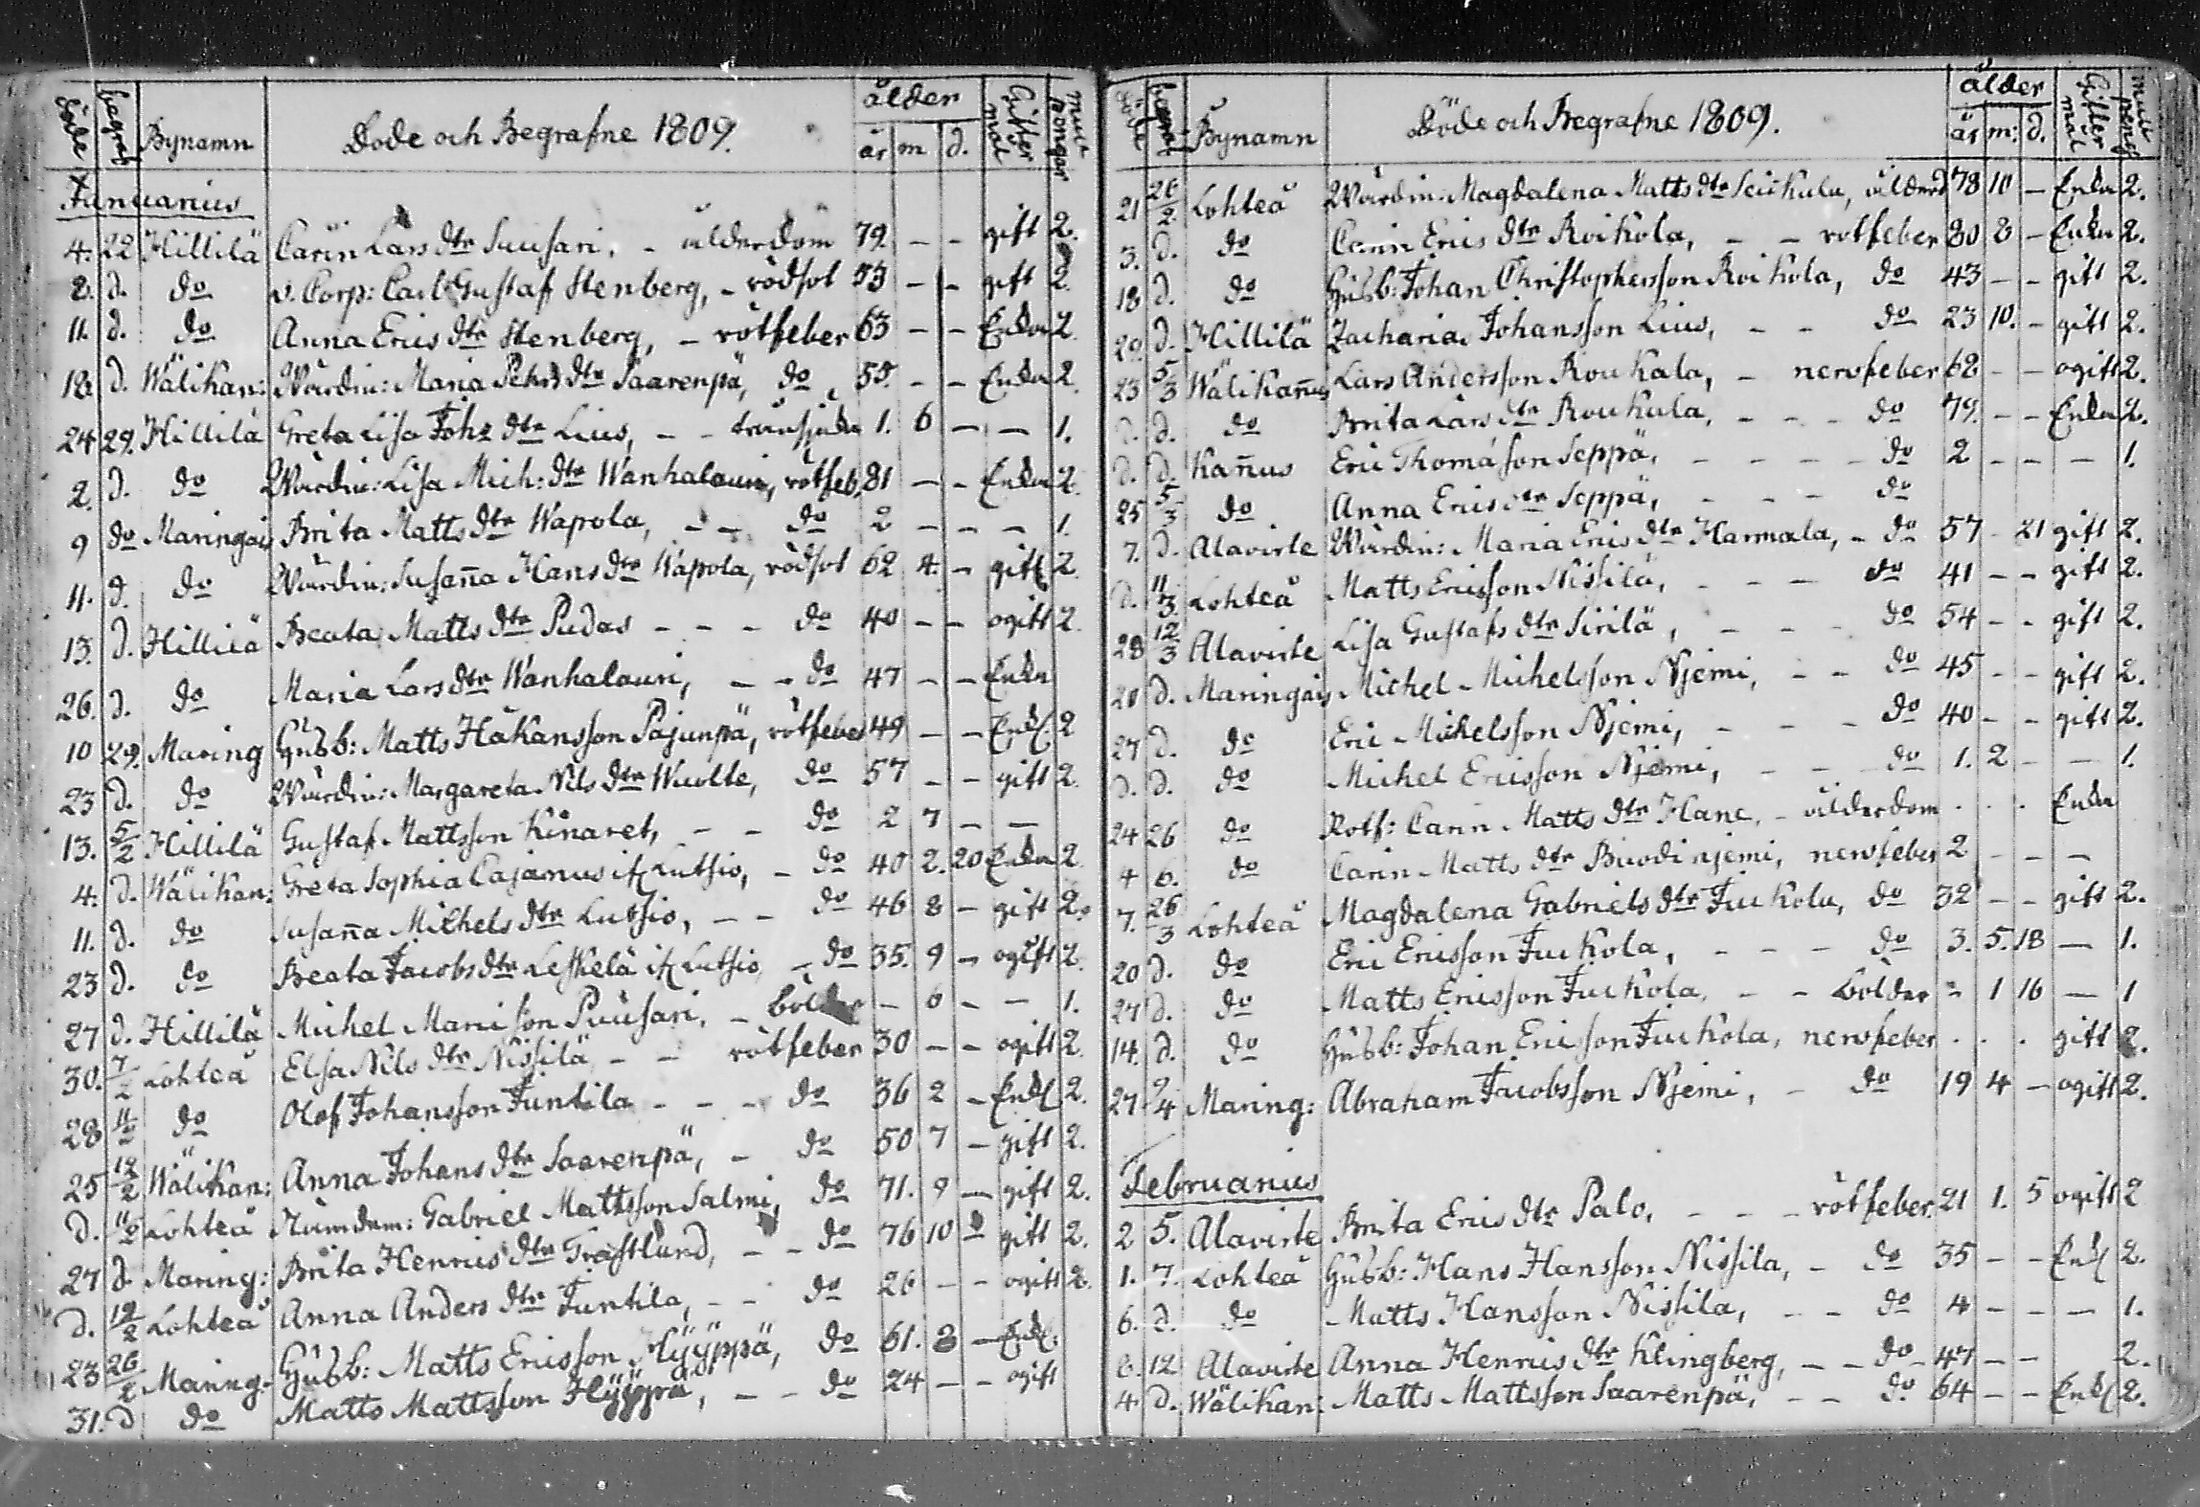 döde begraf Bynamn Döde och Begrafne 1809. ålder år m d. Gifter mål mult pengar
Januarius
4. 22 Hillilä Carin Lars dtr Suusari, - ålderdom 79 - - gift 2.
8. d. do v. Corp: Carl Gustaf Stenberg, - rödsot 53 - - gift 2.
11. d. do Anna Erics dtr Stenberg, - rötfeber 63 - - Enka 2
18. d. Wälikan: Wärdin: Maria Pehrs dtr Saarenpä, do 55. - - Enka 2.
24 29. Hillilä Greta Lisa Johs dtr Lius, - - 1. 6 - - 1.
2. d. do Wärdin: Lisa Mich: dtr Wanhalauri, rötfeb. 81 - - Enka 2
9 do Maringais Brita Matts dtr Wapola, - - do 2 - - - 1.
11. d. do Wärdin: Susaña Hans dtr Wapola, rödsot 62 4. - gift 2
13. d. Hillilä Beata Matts dtr Pudas - - - do 40 - - ogift 2
26. d. do Maria Lars dtr Wanhalauri, - - do 47 - - Enka
10 29. Maring Husb: Matts Håkansson Pajunpä, rötfeber 49 - - Enkl: 2
23 d. do Wärdin: Margareta Nils dtr Wuolle, do 57 - - gift 2.
13. 5/2 Hillilä Gustaf Mattsson Kinaret, - - do 2 7 - -
4. d. Wälikan: Greta Sophia Cajanus Lutsio, - do 40 2. 20 Enka 2
11. d. do Susaña Michels dtr Lutsio, - - do 46 8 - gift 2.
23 d. do Beata Jacobs dtr Leskelä Lutsio - do 35. 9 - ogift 2
27 d. Hillilä Michel Puusari, - bölder - 6 - - 1.
30. 7/2 Lohteå Elsa Nils dtr Nissilä - - rötfeber 30 - - ogift 2
28 11/2 do Olof Johansson Juntila - - - do 36 2 - Enkl 2.
25 12/2 Wälikan: Anna Johans dtr Saarenpä, - do 50 7 - gift 2.
d. 11/2 Lohteå Nämdem: Gabriel Mattsson Salmi, do 71. 9 - gift 2.
27 d. Maring: Brita Henrics dtr Trastlund, - - do 76 10 gift 2.
d. 12/2 Lohteå Anna Anders dtr Juntila, - - do 26 - - ogift 2.
23 26/2 Maring. Husb: Matts Ericsson Hÿÿppä, do 61. 8 - Enkl:
31. d do Matts Mattsson Hÿÿppä, - - do 24 - - ogift
Döde begraf Bynamn Döde och Begrafne 1809. ålder år m: d. Gifter mål mult peng
21 26/2 Lohteå Wärdin: Magdalena Matts dtr Seickula, ålderd 78 10 - Enka 2.
3. d. do Carin Erics dtr Roikola, - - rotfeber 80 8 - Enka 2.
18 d. do Husb: Johan Christophersson Roikola, do 43 - - gift 2.
29. d. Hillilä Zacharias Johansson Lius, - - do 23 10. - gift 2.
23 5/3 Wälikañus Lars Andersson Roukala, - nervfeber 62 - - ogift 2.
d. d. do Brita Lars dtr Roukala, - - - do 79. - - Enka 2.
d. d. Kañus Eric Thomasson Seppä, - - - - do 2 - - - 1.
25 5/3 do Anna Erics dtr Seppä, - - - do
7. d. Alaviste Wärdin: Maria Erics dtr Harmala, - do 57 - 21 gift 2.
d. 11/3 Lohteå Matts Ericsson Nissilä, - - - do 41 - - gift 2.
28 12/3 Alaviste Lisa Gustafs dtr Sirilä, - - - do 54 - - gift 2.
20 d. Maringais Michel Michelsson Njemi, - - do 45 - - gift 2.
27 d. do Eric Michelsson Njemi, - - - do 40 - - gift 2.
d. d. do Michel Ericsson Njemi, - - - do 1. 2 - - 1.
24 26 do Rotf: Carin Matts dtr Hane, - ålderdom . . . Enka
4 6. do Carin Matts dtr Buodinjemi, nervfeber 2 - - -
7. 26/3 Lohteå Magdalena Gabriels dtr Juckola, do 32 - - gift 2.
20 d. do Eric Ericsson Juckola, - - - do 3. 5. 18 - 1.
27 d. do Matts Ericsson Juckola, - - bölder - 1 16 - 1
14. d. do Husb: Johan Ericsson Juckola, nervfeber . . . gift 2.
27 2/4 Maring: Abraham Jacobsson Njemi, - do 19 4 - ogift 2.
Februarius
2 5. Alaviste Brita Erics dtr Palo, - - - rötfeber. 21 1. 5 ogift 2
1. 7. Lohteå Husb: Hans Hansson Nissila, - do 35 - - Enkl 2.
6. d. do Matts Hansson Nissila, - - do 4 - - - 1.
6. 12 Alaviste Anna Henrics dtr Klingberg, - - do 47 - - 2.
4. d. Wälikan: Matts Mattsson Saarenpä, - - do 64 - - Enkl 2.